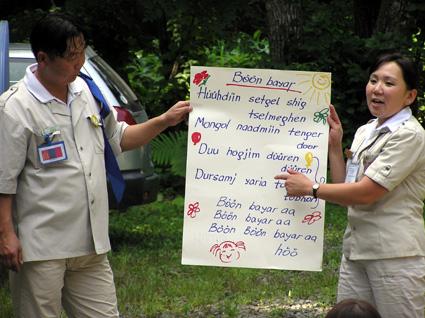 Böön bayar
Hüühdiin setgel shig
tselmeghen
Mongol naadmiin tenger
door
Duu hogjim düüren
düüren
Dursamj xaria
Böön bayar aa
Böön bayar aa
Böön Böön bayar aa
höö